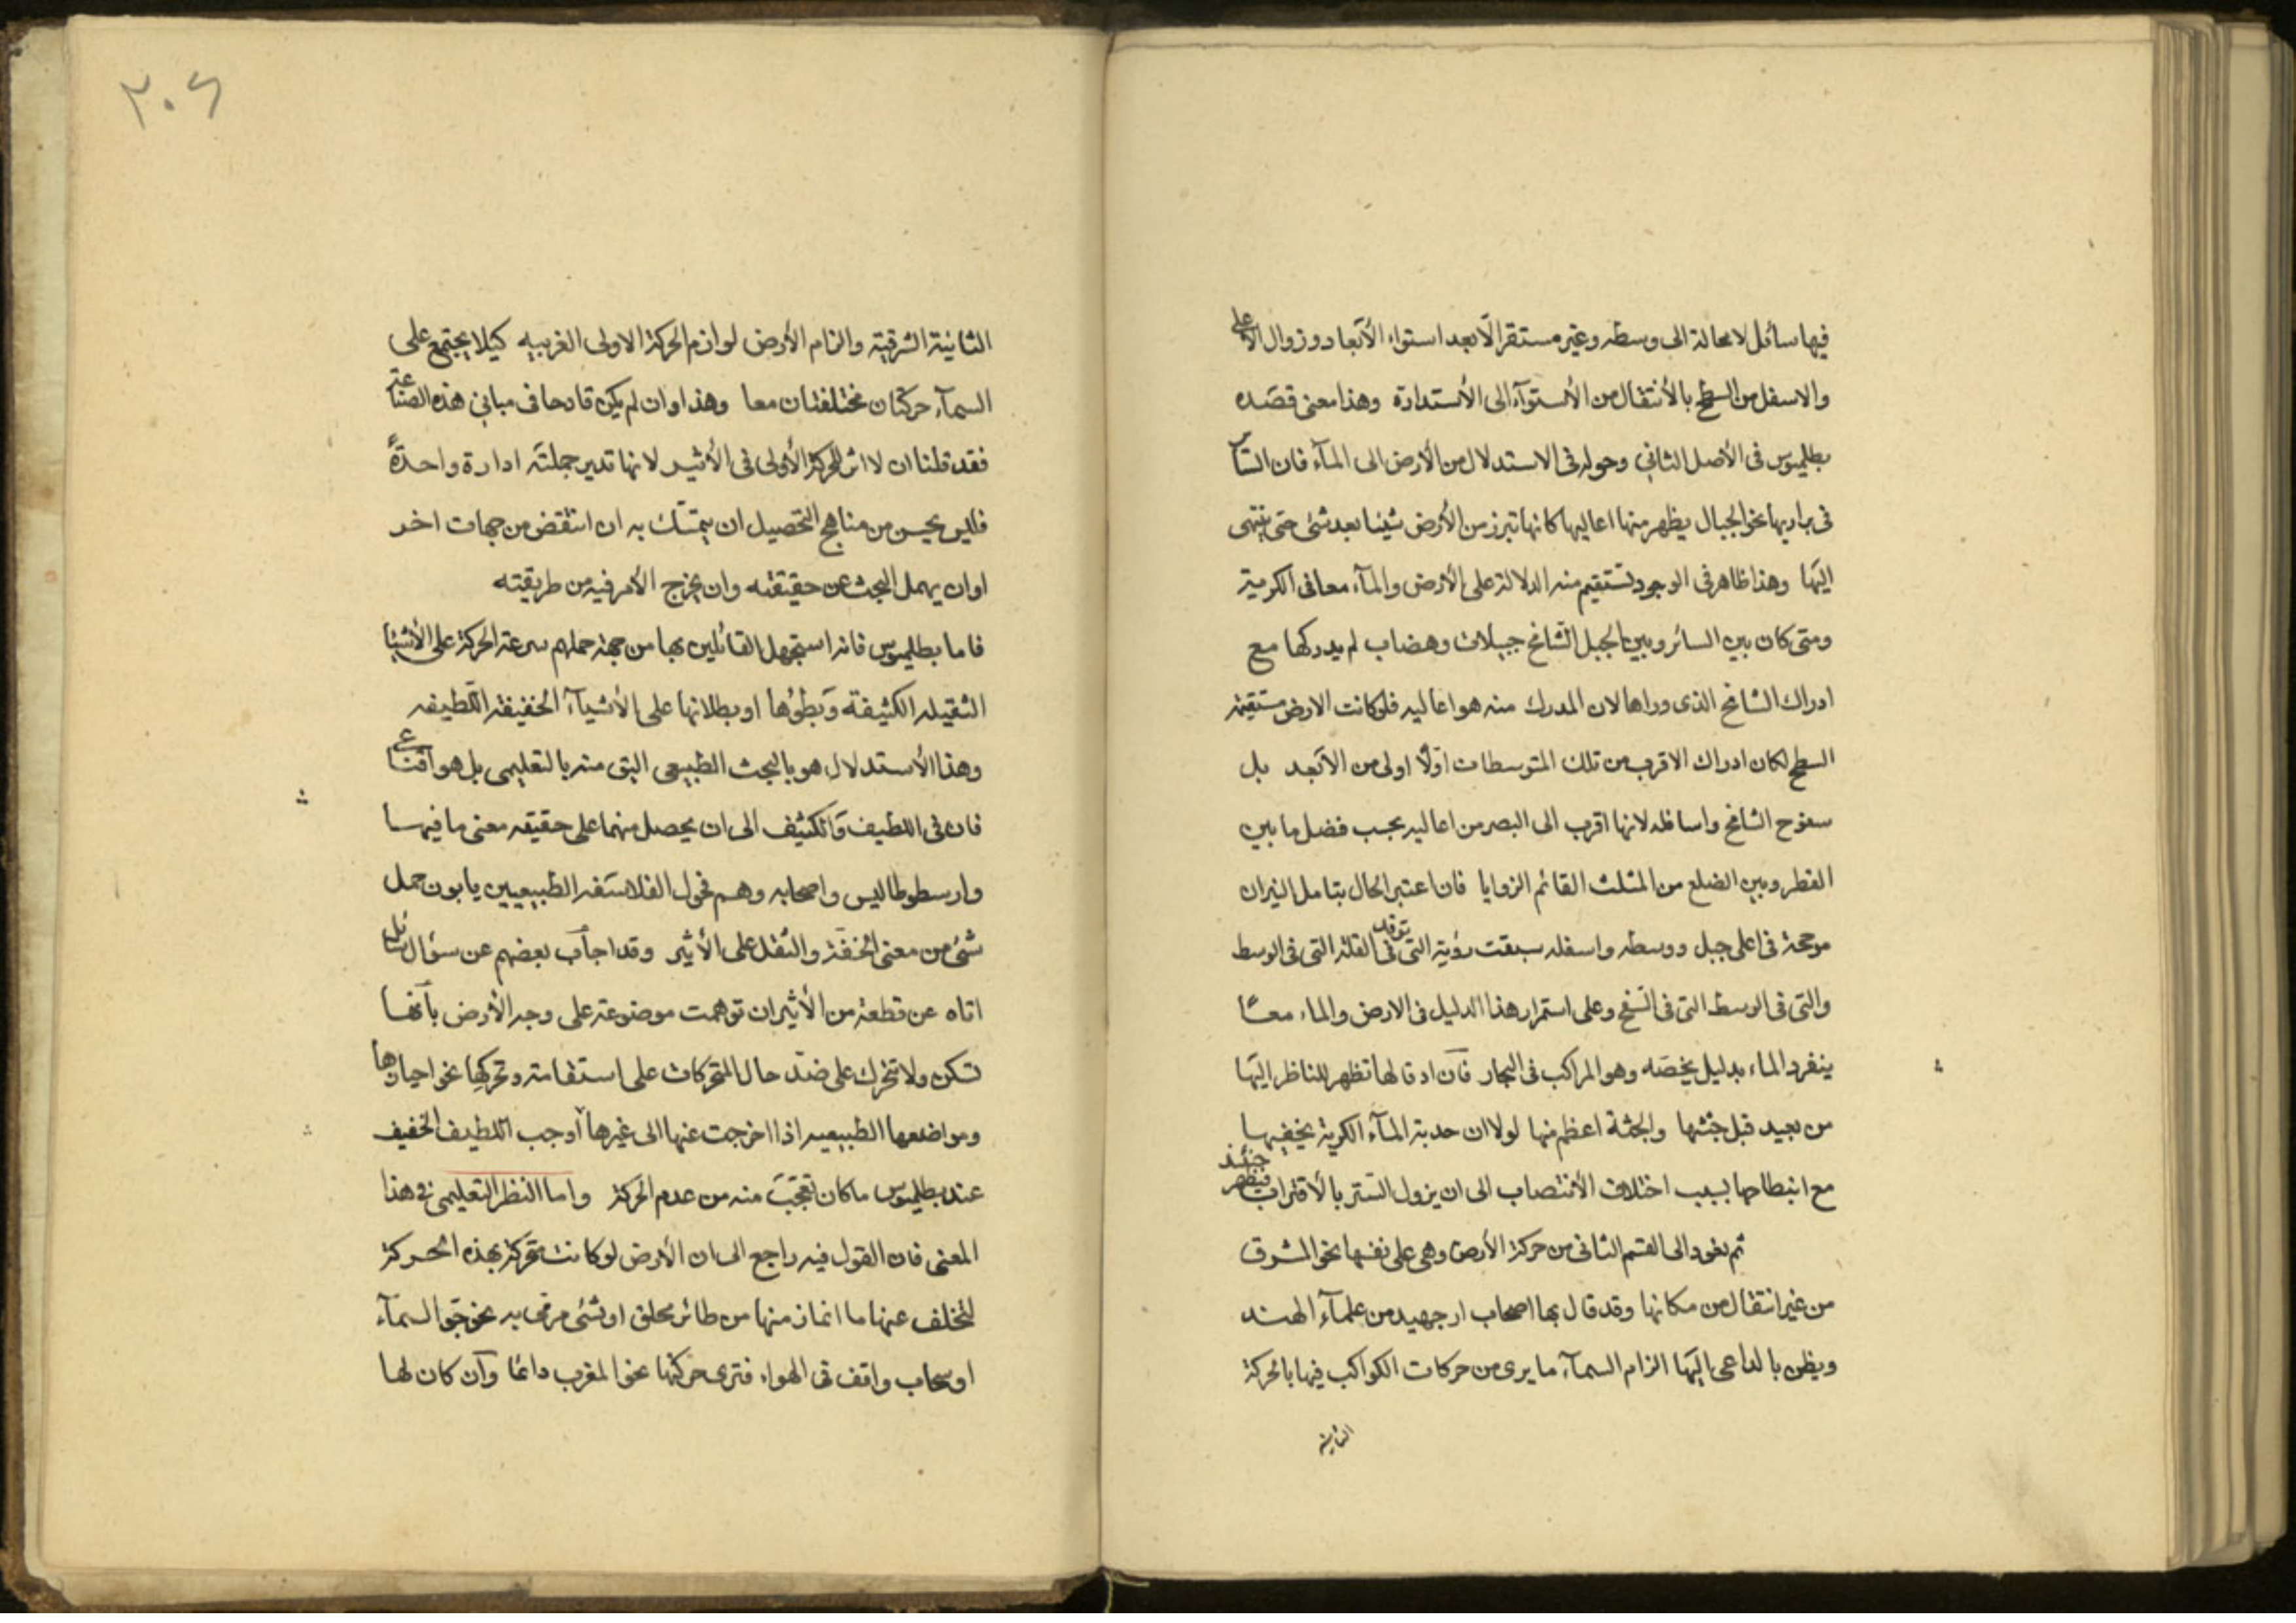 فيها سائل لا محالة الى وسطه وغير مستقر الّا بعد استواء الأبعاد وزوال الاعلى
والاسفل من السطح بالأنتقال من الأستوآء الى الأستدارة وهذا معنى قصَده
بطلميوس فى الأصل الثانى وحوله فى الاستدلال من الأرض الى المآء فان السائر
فى براريها نحو الجبال يظهر منها اعاليها كانها تبرز من الأرض شيئا بعد شئ حتى ينتهى
اليَها وهذا ظاهر فى الوجود تستقيم منه الدلالة على الأرض والمآء معا فى الكرية
ومتى كان بين السائر وبين الجبل الشامخ جبيلات وهضاب لم يدركها مع
ادراك الشامخ الذى وراها لان المدرك منه هو اعاليه فلو كانت الارض مستقيمة
السطح لكان ادراك الاقرب من تلك المتوسطات اوّلًا اولى من الأبعد بل
سفوح الشامخ واسافله لانها اقرب الى البصر من اعاليه بحسب فضل ما بين
القطر وبين الضلع من المثلث القائم الزوايا فان اعتبر الحال بتامل النيران
موججة فى اعلى جبل ووسطه واسفله سبقت رؤية التى توقد فى القلة التى فى الوسط
والتى فى الوسط التى فى السفح وعلى استمرار هذا الدليل فى الارض والماء معًا
ينفرد الماء بدليل يخصّه وهو المراكب فى البحار فان ادقالها تظهر للناظر اليَها
من بعيد قبل جثثها والجثة اعظم منها لولا ان حدبة المآء الكرية يخفيها
مع انبطاحها بسبب اختلاف الأنتصاب الى ان يزول التستر بالأقتراب فيظهر حينئذ
ثم نعود الى القسم الثانى من حركة الأرض وهى على نفسها نحو المشرق
من غير انتقال من مكانها وقد قال بها اصحاب ارجبهد من علمآء الهند
ويظن بالداعى اليَها الزام السمآء ما يرى من حركات الكواكب فيها بالحركة
الثانية
٢٠٦
الثانية الشرقية والزام الأرض لوازم الحركة الاولى الغربيه كيلا يجتمع على
السمآء حركتان مختلفتان معا وهذا وان لم يكن قادحا فى مبانى هذه الصناعة
فقد قلنا ان لا اثر للحركة الأولى فى الأثير لانها تدير جملتَه ادارة واحدةً
فليس يحسن من مناهج التحصيل ان يتمسّك به ان انتقض من جهات اخر
او ان يهمل البحث عن حقيقته وان يخرج الأمر فيه من طريقته
فاما بطلميوس فانه استجهل القائلين بها من جهة حملهم سرعة الحركة على الأشيا
الثقيله الكثيفة وَبطؤها او بطلانها على الأشيآء الخفيفة اللطيفه
وهذا الأستدلال هو بالبحث الطبيعى اليق منه بالتعليمى بل هو اقناعى
فان فى اللطيف وَالكثيف الى ان يحصل منهما على حقيقه معنى ما فيهما
وارسطوطاليس واصحابه وهم فحول الفلاسَفه الطبيعيين يابون حمل
شئ من معنى الخفّة والثقل على الأثير وقد اجاب بعضهم عن سؤال سائل
اتاه عن قطعة من الأثير ان توهمت موضوعة على وجه الأرض بانها
تسكن ولا تتحرك على ضدّ حال المتحركات على استقامة وتحركها نحو احيازها
ومواضعها الطبيعيه اذا اخرجت عنها الى غيرها اوجب اللطيف الخفيف
عند بطلميوس ما كان تعجّبَ منه من عدم الحركة واما النظر التعليمى فى هذا
المعنى فان القول فيه راجع الى ان الأرض لو كانت متحركة بهذه الحركة
لتخلف عنها ما انماز منها من طائر محلق او شئ مرمى به نحو جّو السمآء
او سحاب واقف فى الهواء فترى حركتها نحو المغرب دائما وَان كان لها